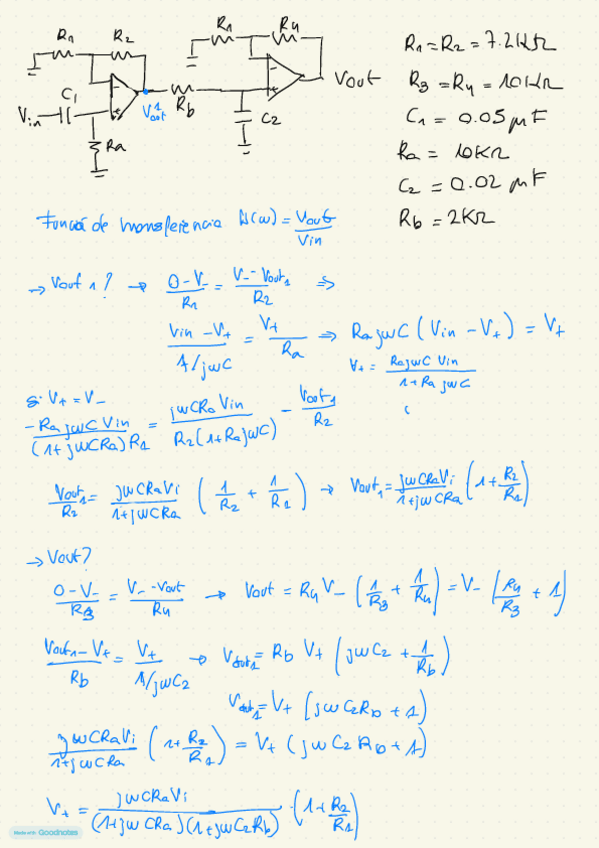 R1 R2 R1 R4
R1=R2 = 7.2KΩ
Vin C1 Ra Vout1 Rb C2 Vout
R3=R4 = 10KΩ
C1 = 0.05 μF
Ra = 10KΩ
C2 = 0.02 μF
Rb = 2KΩ
Función de transferencia H(ω) = Vout/Vin
→ Vout1? → (0-V-)/R1 = (V- - Vout1)/R2 ⇒
(Vin - V+)/(1/jωC) = V+/Ra ⇒ RajωC (Vin - V+) = V+
V+ = RajωC Vin/(1+RajωC)
si V+ = V-
-RajωC Vin/((1+jωCRa)R1) = jωCRaVin/(R2(1+RajωC)) - Vout1/R2
Vout1/R2 = jωCRaVi/(1+jωCRa) (1/R2 + 1/R1) → Vout1 = jωCRaVi/(1+jωCRa) (1+R2/R1)
→ Vout?
(0-V-)/R3 = (V- - Vout)/R4 → Vout = R4 V- (1/R3 + 1/R4) = V- [R4/R3 + 1]
(Vout1 - V+)/Rb = V+/(1/jωC2) → Vout1 = Rb V+ (jωC2 + 1/Rb)
Vout1 = V+ [jωC2Rb + 1)
jωCRaVi/(1+jωCRa) (1+R2/R1) = V+ (jωC2Rb+1)
V+ = jωCRaVi/((1+jωCRa)(1+jωC2Rb)) · (1+R2/R1)
Made with Goodnotes